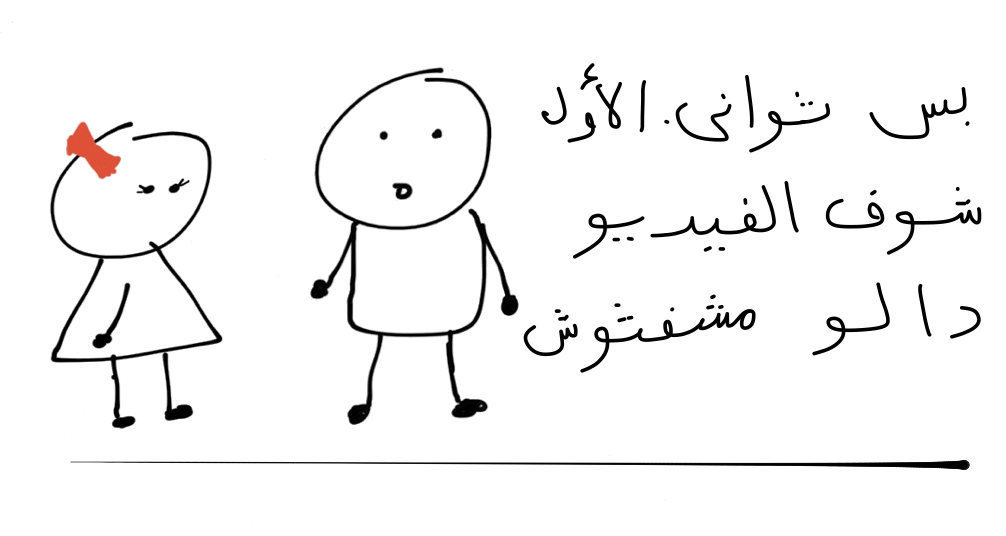 بس ثوانى. الأول
شوف الفيديو
دا لو مشفتوش